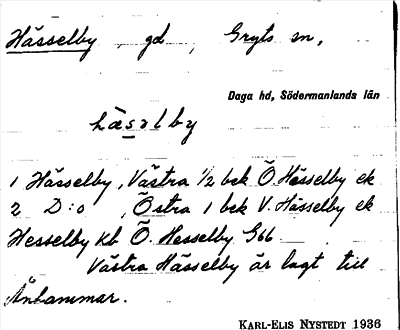 Hässelby gd, Gryts sn,
Daga hd, Södermanlands län
hæsəlby
1 Hässelby, Västra 1/2 bek Ö. Hässelby ek
2 D:o, Östra 1 bek V. Hässelby ek
Hesselby Kb Ö. Hesselby G66
Västra Hässelby är lagt till
Änhammar.
KARL-ELIS NYSTEDT 1936